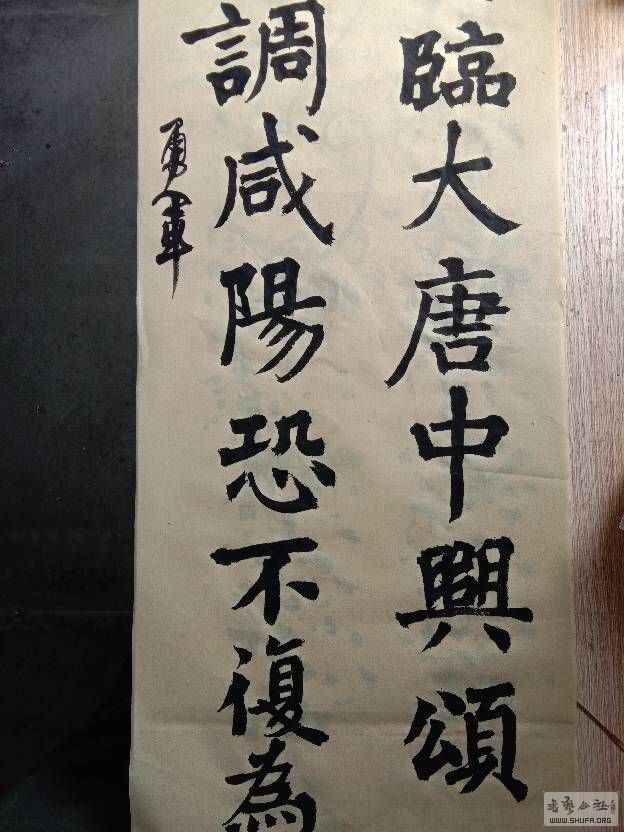 臨大唐中興頌
調咸陽恐不復為
勇軍
书艺公社
WWW.SHUFA.ORG